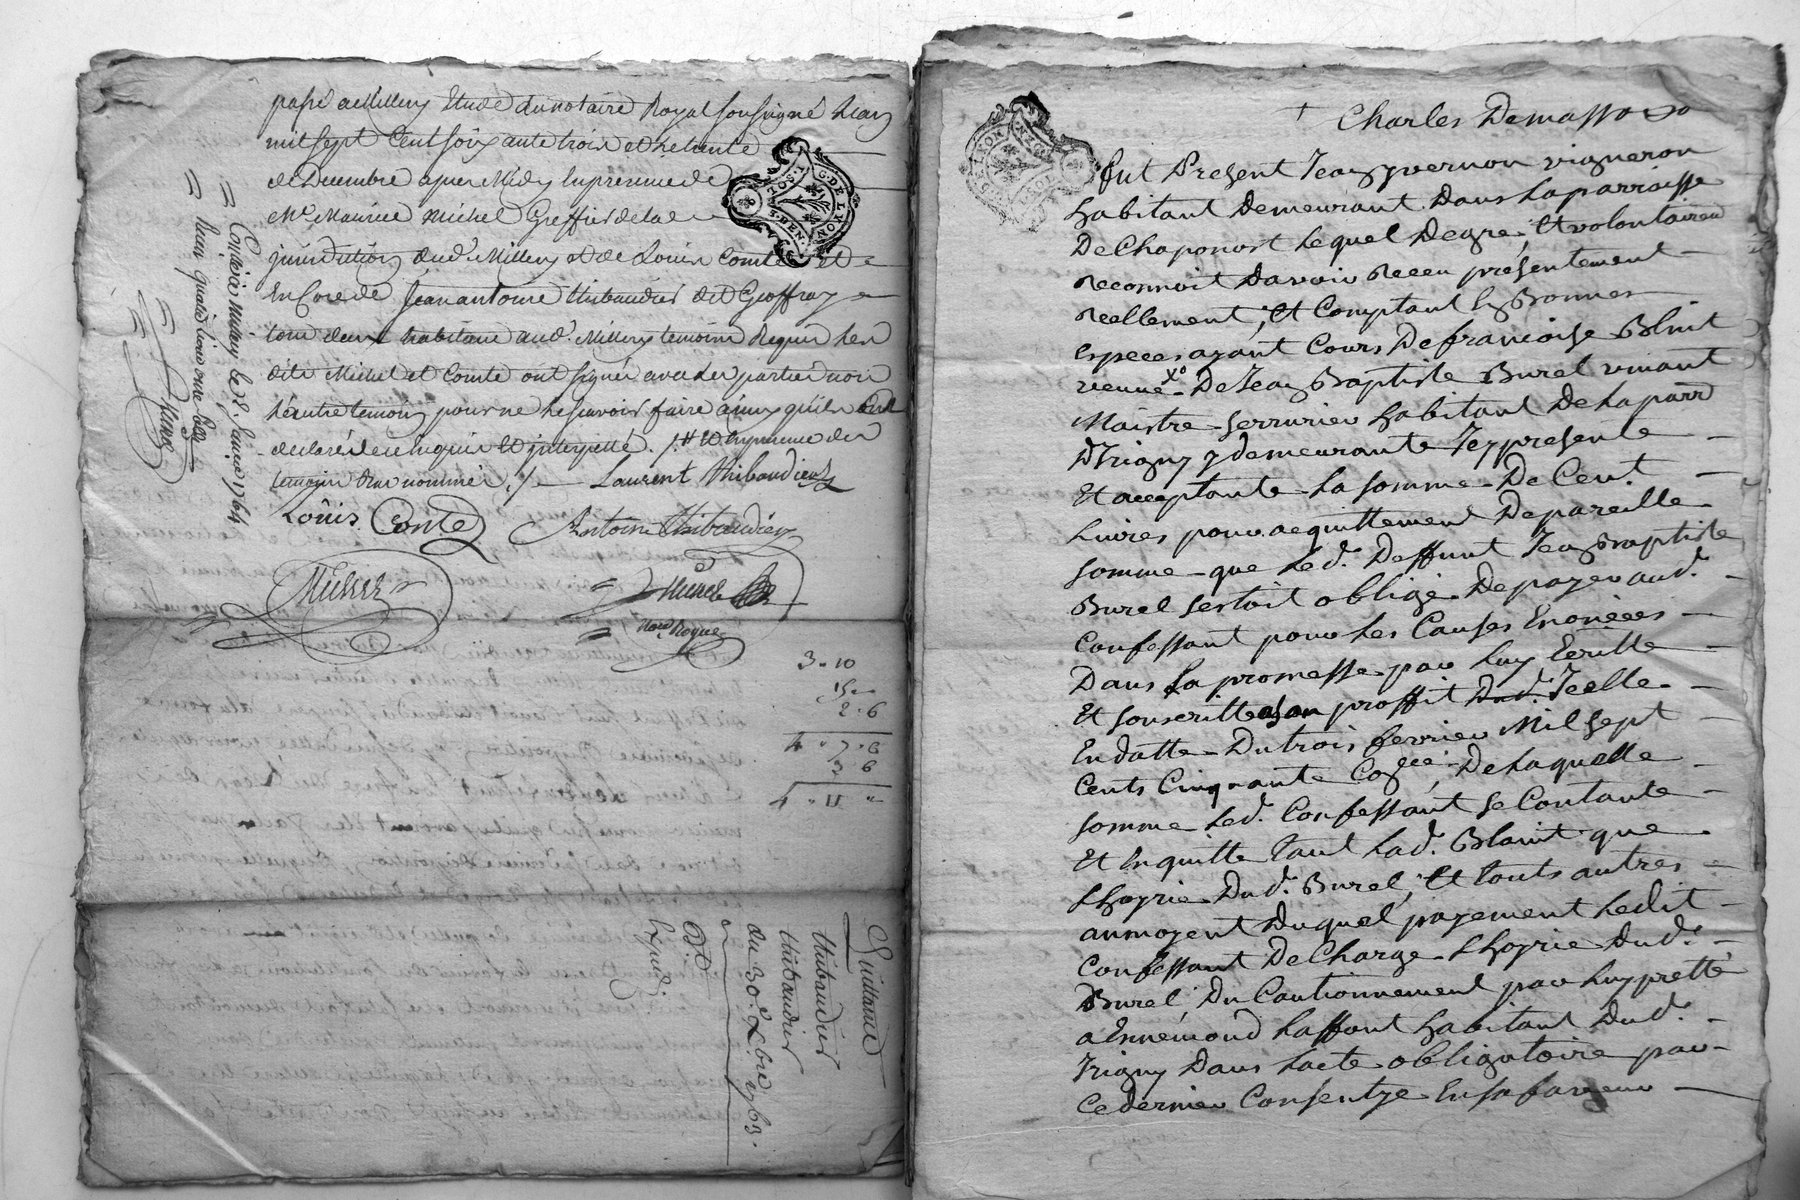 passé a Millery Etude du notaire Royal soussigné L'an
mil sept Cent soixante trois et le trente
de Decembre apres Midy En presence de
Me. Maurice Michel Greffier de la
jurisdiction dud. Millery et de Louis Comte et
Encore de Jean antoine thibaudier dit Geoffray
tous deux habitans aud. Millery temoins Requis Les
dits Michel et Comte ont signés avec Les parties non
L'autre temoin pour ne le savoir faire ainsy qu'ils ont
declarés de ce Enquis et interpellé. /. # Et En presence des
temoins susnommés ./. Laurent thibaudier
Louis Conte Antoine thibaudier
Michel
Michel
nore. Royal
3 " 10
15
2 " 6
4 " 7 " 6
3 6
4 " 11 "
Controlé a Millery Le 28. janvier 1764
Recu quatre livres onze sols
Michel
Quittance
thibaudier
thibaudier
du 30. Xbre 1763.
Charles Demasso
fut Present Jean yvernon vigneron
habitant demeurant Dans La parroisse
De Chaponost Lequel De gré, Et volontairem
Reconnoit Davoir Receu présentement
Reellement, Et Comptant En Bonnes
Especes ayant Cours De francoise Blint
veuve De Jean Baptiste Burel vivant
Maistre Serrurier habitant De La parr
D'Irigny y demeurante Icy presente
Et acceptante La somme De Cent
Livres pour acquittement De pareille
Somme que Led. Deffunt Jean Baptiste
Burel sestoit obligé De payer aud.
Confessant pour Les Causes Enoncées
Dans La promesse par Luy Ecritte
Et souscritte a son proffit Dud. Icelle
En datte Du trois fevrier Mil sept
Cents Cinquante De Laquelle
somme Led. Confessant se Contante
Et En quitte tant Lad. Blaint que
L'hoyrie Dud. Burel, Et touts autres
au moyent Duquel payement Ledit
Confessant De Charge L'hoyrie Dud.
Burel Du Cautionnement par Luy pretté
a Ennemond Laffont habitant Dud.
Irigny Dans L'acte obligatoire par
Ce dernier Consenty En sa faveur